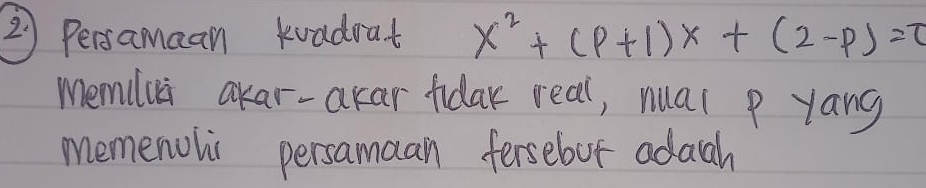 2. Persamaan kuadrat x² + (p+1)x + (2-p) = 0
Memiliki akar-akar tidak real, nilai p yang
memenuhi persamaan tersebut adalah